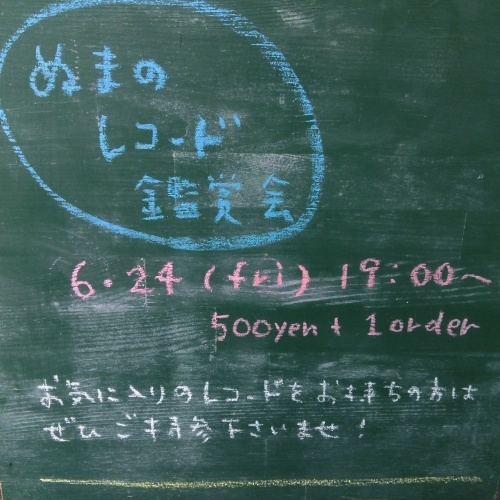 ぬまの
レコード
鑑賞会
6・24(fri) 19:00~
500yen + 1 order
お気に入りのレコードをお持ちの方は
ぜひご持参下さいませ!